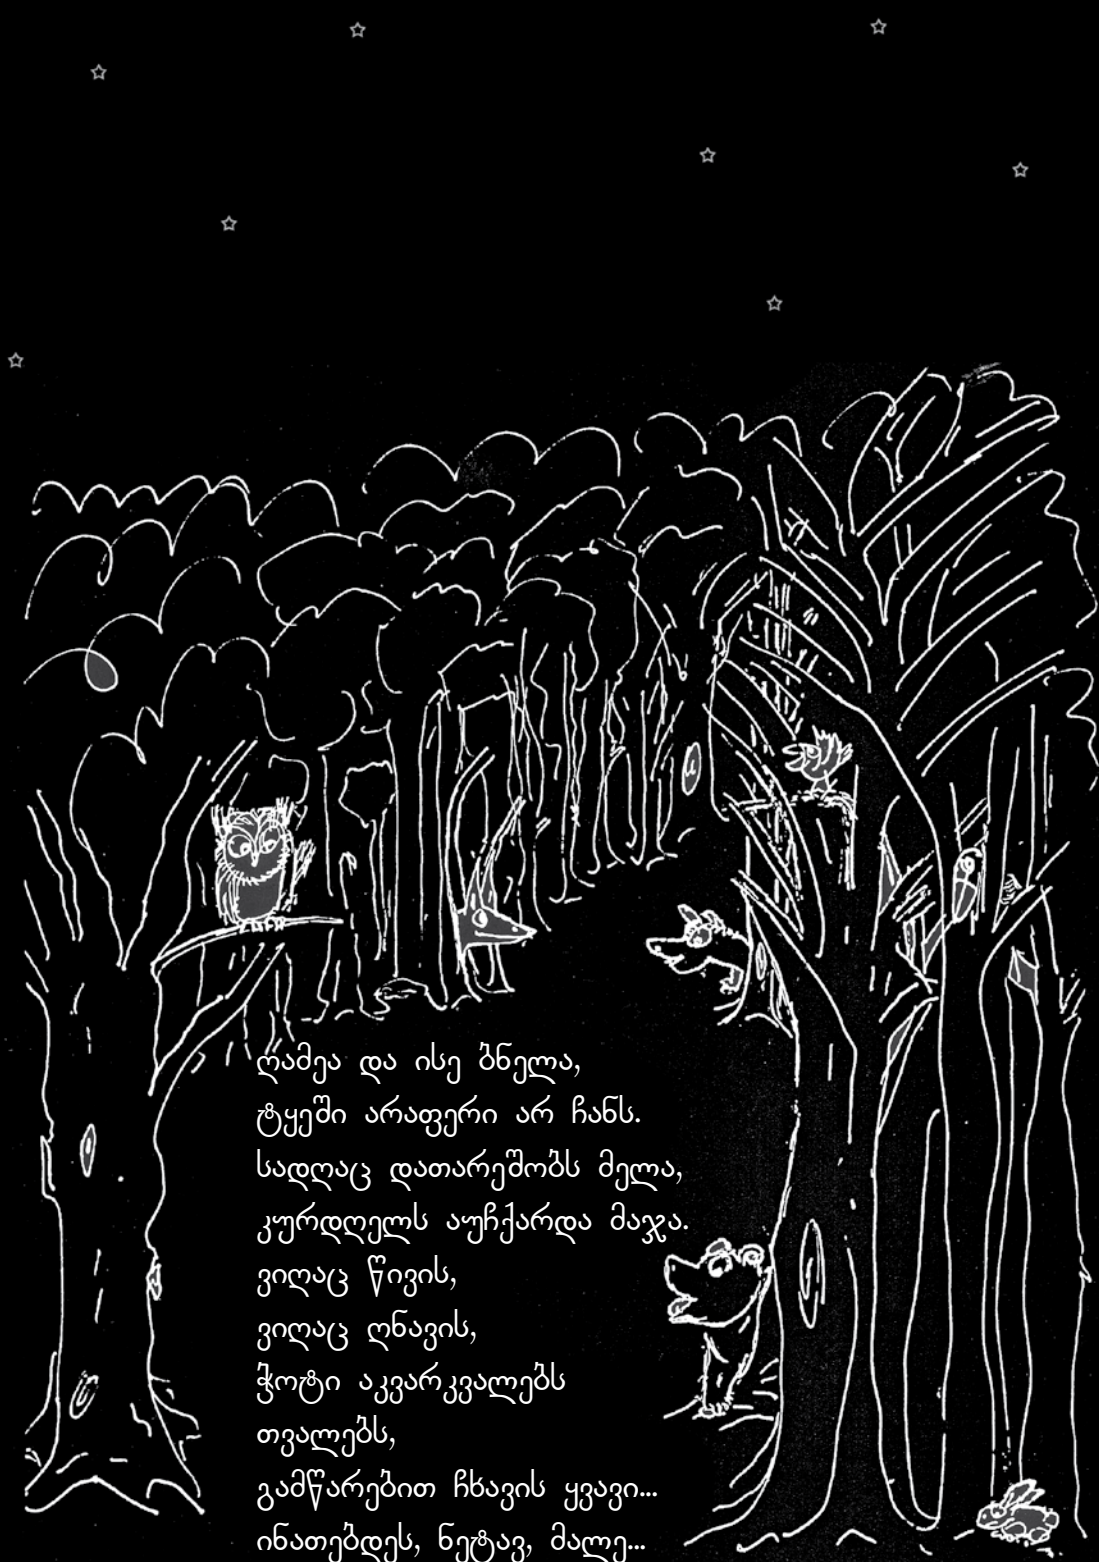 ღამეა და ისე ბნელა,
ტყეში არაფერი არ ჩანს.
სადღაც დათარეშობს მელა,
კურდღელს აუჩქარდა მაჯა.
ვიღაც წივის,
ვიღაც ღნავის,
ჭოტი აკვარკვალებს
თვალებს,
გამწარებით ჩხავის ყვავი...
ინათებდეს, ნეტავ, მალე...